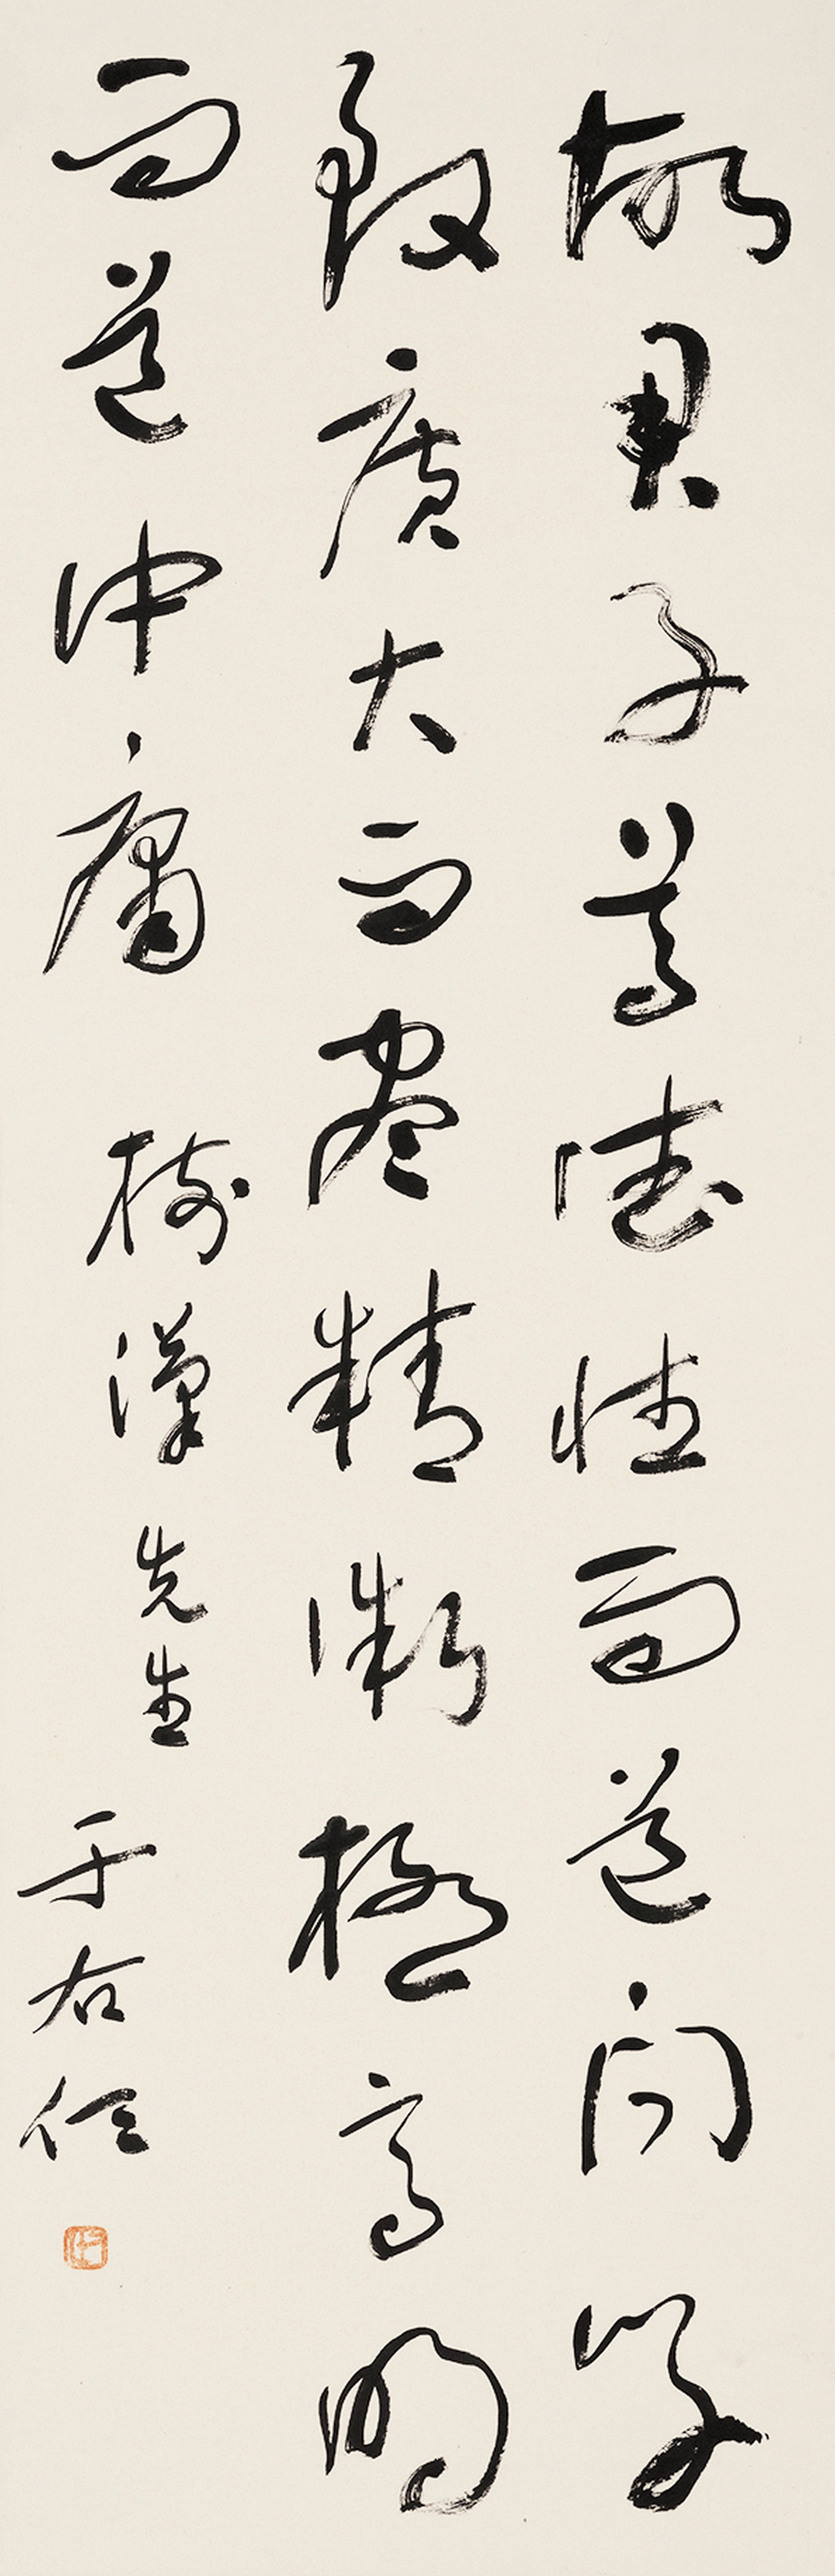 故君子尊德性而道問學
致廣大而盡精微極高明
而道中庸 樹漢先生 于右任